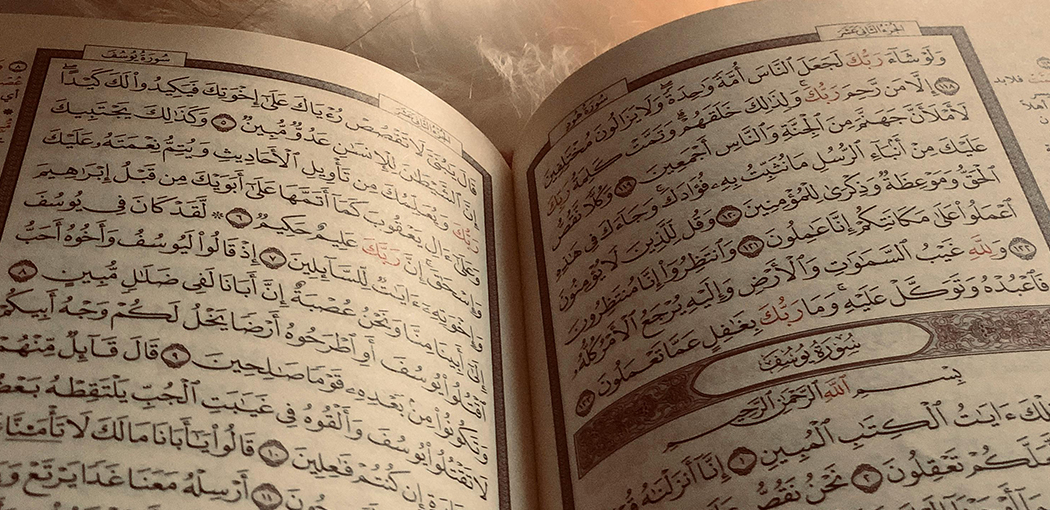 الجُزْءُ الثَّانِي عَشَرَ
سُورَةُ هُودٍ
وَلَوْ شَآءَ رَبُّكَ لَجَعَلَ ٱلنَّاسَ أُمَّةً وَٰحِدَةً ۖ وَلَا يَزَالُونَ مُخْتَلِفِينَ
١١٨ إِلَّا مَن رَّحِمَ رَبُّكَ ۚ وَلِذَٰلِكَ خَلَقَهُمْ ۗ وَتَمَّتْ كَلِمَةُ رَبِّكَ
لَأَمْلَأَنَّ جَهَنَّمَ مِنَ ٱلْجِنَّةِ وَٱلنَّاسِ أَجْمَعِينَ ١١٩ وَكُلًّا نَّقُصُّ
عَلَيْكَ مِنْ أَنۢبَآءِ ٱلرُّسُلِ مَا نُثَبِّتُ بِهِۦ فُؤَادَكَ ۚ وَجَآءَكَ فِى هَٰذِهِ
ٱلْحَقُّ وَمَوْعِظَةٌ وَذِكْرَىٰ لِلْمُؤْمِنِينَ ١٢٠ وَقُل لِّلَّذِينَ لَا يُؤْمِنُونَ
ٱعْمَلُوا۟ عَلَىٰ مَكَانَتِكُمْ إِنَّا عَٰمِلُونَ ١٢١ وَٱنتَظِرُوٓا۟ إِنَّا مُنتَظِرُونَ
١٢٢ وَلِلَّهِ غَيْبُ ٱلسَّمَٰوَٰتِ وَٱلْأَرْضِ وَإِلَيْهِ يُرْجَعُ ٱلْأَمْرُ كُلُّهُۥ
فَٱعْبُدْهُ وَتَوَكَّلْ عَلَيْهِ ۚ وَمَا رَبُّكَ بِغَٰفِلٍ عَمَّا تَعْمَلُونَ ١٢٣
سُورَةُ يُوسُفَ
بِسْمِ ٱللَّهِ ٱلرَّحْمَٰنِ ٱلرَّحِيمِ
ءَايَٰتُ ٱلْكِتَٰبِ ٱلْمُبِينِ ١ إِنَّآ أَنزَلْنَٰهُ
تَعْقِلُونَ ٢ نَحْنُ نَقُصُّ
سُورَةُ يُوسُفَ
الجُزْءُ الثَّانِي عَشَرَ
قَالَ يَٰبُنَىَّ لَا تَقْصُصْ رُءْيَاكَ عَلَىٰٓ إِخْوَتِكَ فَيَكِيدُوا۟ لَكَ كَيْدًا ۖ
إِنَّ ٱلشَّيْطَٰنَ لِلْإِنسَٰنِ عَدُوٌّ مُّبِينٌ ٥ وَكَذَٰلِكَ يَجْتَبِيكَ
رَبُّكَ وَيُعَلِّمُكَ مِن تَأْوِيلِ ٱلْأَحَادِيثِ وَيُتِمُّ نِعْمَتَهُۥ عَلَيْكَ
وَعَلَىٰٓ ءَالِ يَعْقُوبَ كَمَآ أَتَمَّهَا عَلَىٰٓ أَبَوَيْكَ مِن قَبْلُ إِبْرَٰهِيمَ
وَإِسْحَٰقَ ۚ إِنَّ رَبَّكَ عَلِيمٌ حَكِيمٌ ٦ * لَّقَدْ كَانَ فِى يُوسُفَ
وَإِخْوَتِهِۦٓ ءَايَٰتٌ لِّلسَّآئِلِينَ ٧ إِذْ قَالُوا۟ لَيُوسُفُ وَأَخُوهُ أَحَبُّ
إِلَىٰٓ أَبِينَا مِنَّا وَنَحْنُ عُصْبَةٌ إِنَّ أَبَانَا لَفِى ضَلَٰلٍ مُّبِينٍ ٨
ٱقْتُلُوا۟ يُوسُفَ أَوِ ٱطْرَحُوهُ أَرْضًا يَخْلُ لَكُمْ وَجْهُ أَبِيكُمْ
وَتَكُونُوا۟ مِنۢ بَعْدِهِۦ قَوْمًا صَٰلِحِينَ ٩ قَالَ قَآئِلٌ مِّنْهُمْ
لَا تَقْتُلُوا۟ يُوسُفَ وَأَلْقُوهُ فِى غَيَٰبَتِ ٱلْجُبِّ يَلْتَقِطْهُ بَعْضُ
إِن كُنتُمْ فَٰعِلِينَ ١٠ قَالُوا۟ يَٰٓأَبَانَا مَا لَكَ لَا تَأْمَ۫نَّا
١١ أَرْسِلْهُ مَعَنَا غَدًا يَرْتَعْ